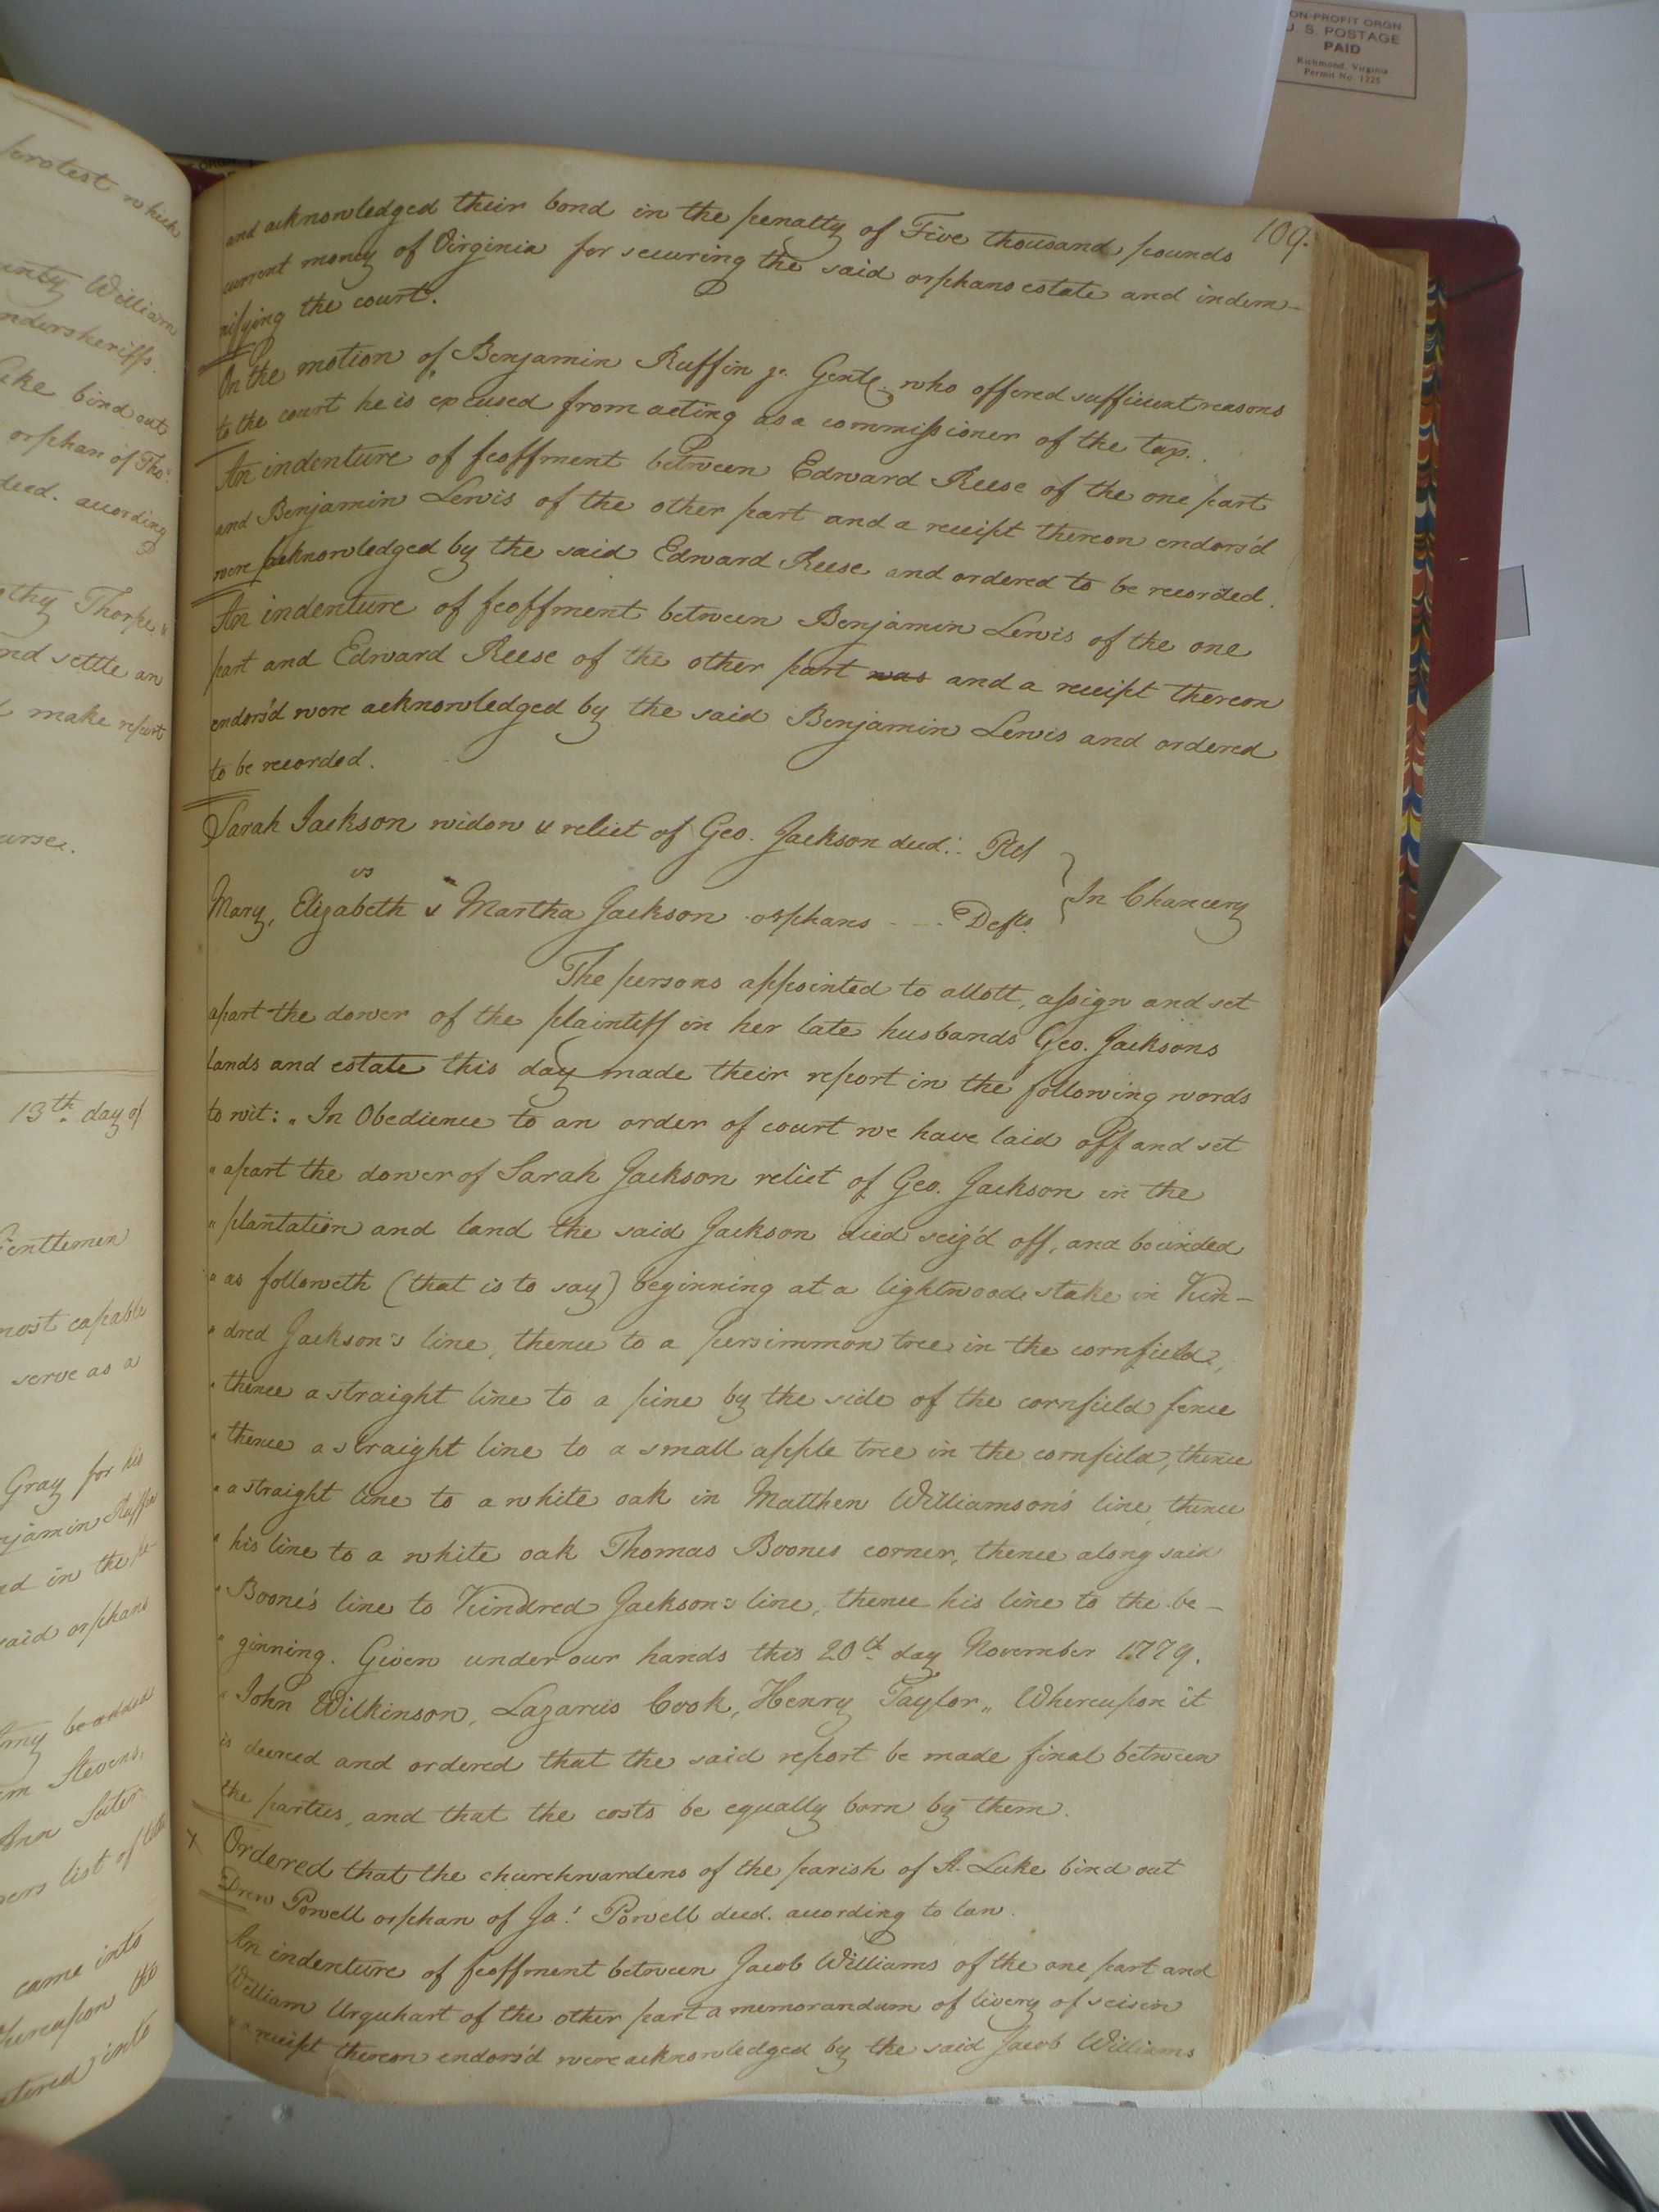 ON-PROFIT ORGN.
U. S. POSTAGE
PAID
Richmond, Virginia
Permit No. 1225
109.
and acknowledged their bond in the penalty of Five thousand pounds
current money of Virginia for securing the said orphans estate and indem-
nifying the court.
On the motion of Benjamin Ruffin jr. Gentl. who offered sufficient reasons
to the court he is excused from acting as a commissioner of the tax.
An indenture of feoffment between Edward Reese of the one part
and Benjamin Lewis of the other part and a receipt thereon endors'd
were acknowledged by the said Edward Reese and ordered to be recorded.
An indenture of feoffment between Benjamin Lewis of the one
part and Edward Reese of the other part was and a receipt thereon
endors'd were acknowledged by the said Benjamin Lewis and ordered
to be recorded.
Sarah Jackson widow & relict of Geo. Jackson decd. Plt
vs
In Chancery
Mary, Elizabeth & Martha Jackson orphans - - - Defts.
The persons appointed to allott, assign and set
apart the dower of the plaintiff in her late husbands Geo. Jacksons
lands and estate this day made their report in the following words
to wit: "In Obedience to an order of court we have laid off and set
" apart the dower of Sarah Jackson relict of Geo. Jackson in the
" plantation and land the said Jackson died seiz'd off, and bounded
" as followeth (that is to say) beginning at a lightwood stake in Kin-
" dred Jackson's line, thence to a persimmon tree in the cornfield,
" thence a straight line to a pine by the side of the cornfield fence
" thence a straight line to a small apple tree in the cornfield, thence
" a straight line to a white oak in Matthew Williamson's line, thence
" his line to a white oak Thomas Boones corner, thence along said
" Boone's line to Kindred Jackson's line, thence his line to the be-
" ginning. Given under our hands this 20th day November 1779.
" John Wilkinson, Lazarus Cook, Henry Taylor" Whereupon it
is decreed and ordered that the said report be made final between
the parties, and that the costs be equally born by them.
x Ordered that the churchwardens of the parish of St. Luke bind out
Drew Powell orphan of Jas. Powell decd. according to law.
An indenture of feoffment between Jacob Williams of the one part and
William Urquhart of the other part a memorandum of livery of seisin
& a receipt thereon endors'd were acknowledged by the said Jacob Williams
protest which
William
ndersheriffs.
Luke bind out
orphan of Thos.
decd. according
Thorpe &
nd settle an
make report
13th day of
Gentlemen
most capable
serve as a
Gray for his
njamin Ruffin
d in the pe-
said orphans
be added
m Stevens,
list of
came into
Whereupon the
ntered into